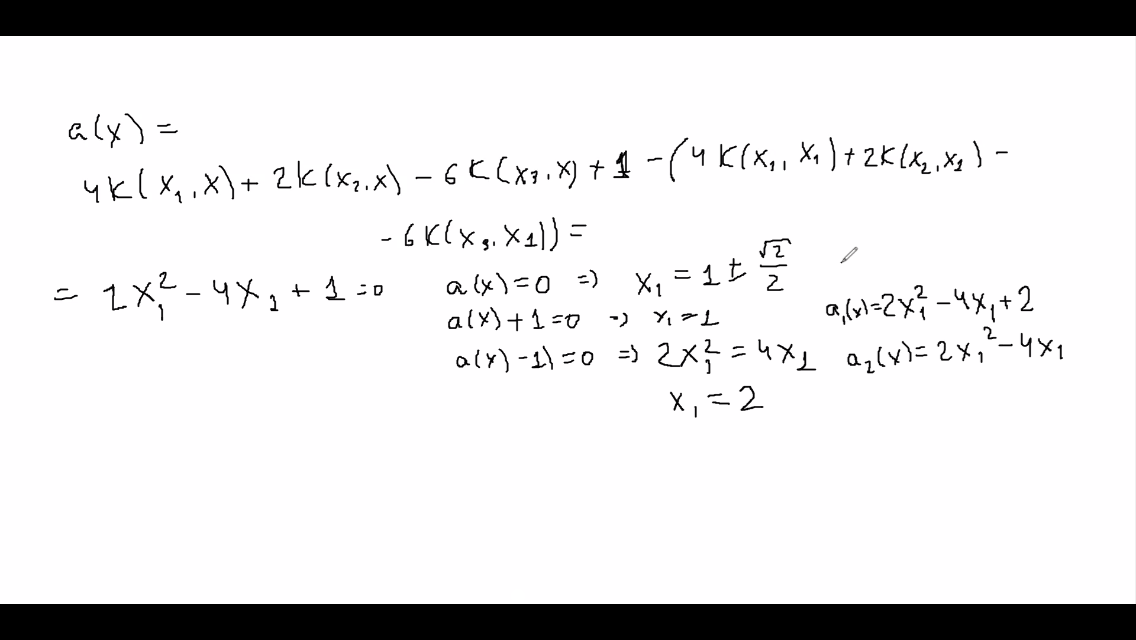 a(x) =
4K(x₁, x) + 2K(x₂, x) − 6K(x₃, x) + 1 − (4K(x₁, x₁) + 2K(x₂, x₁) −
− 6K(x₃, x₁)) =
= 2x₁² − 4x₁ + 1 = 0
a(x) = 0 ⇒ x₁ = 1 ± √2/2
a(x) + 1 = 0 ⇒ x₁ = 1
a(x) − 1) = 0 ⇒ 2x₁² = 4x₁
x₁ = 2
a₁(x) = 2x₁² − 4x₁ + 2
a₂(x) = 2x₁² − 4x₁